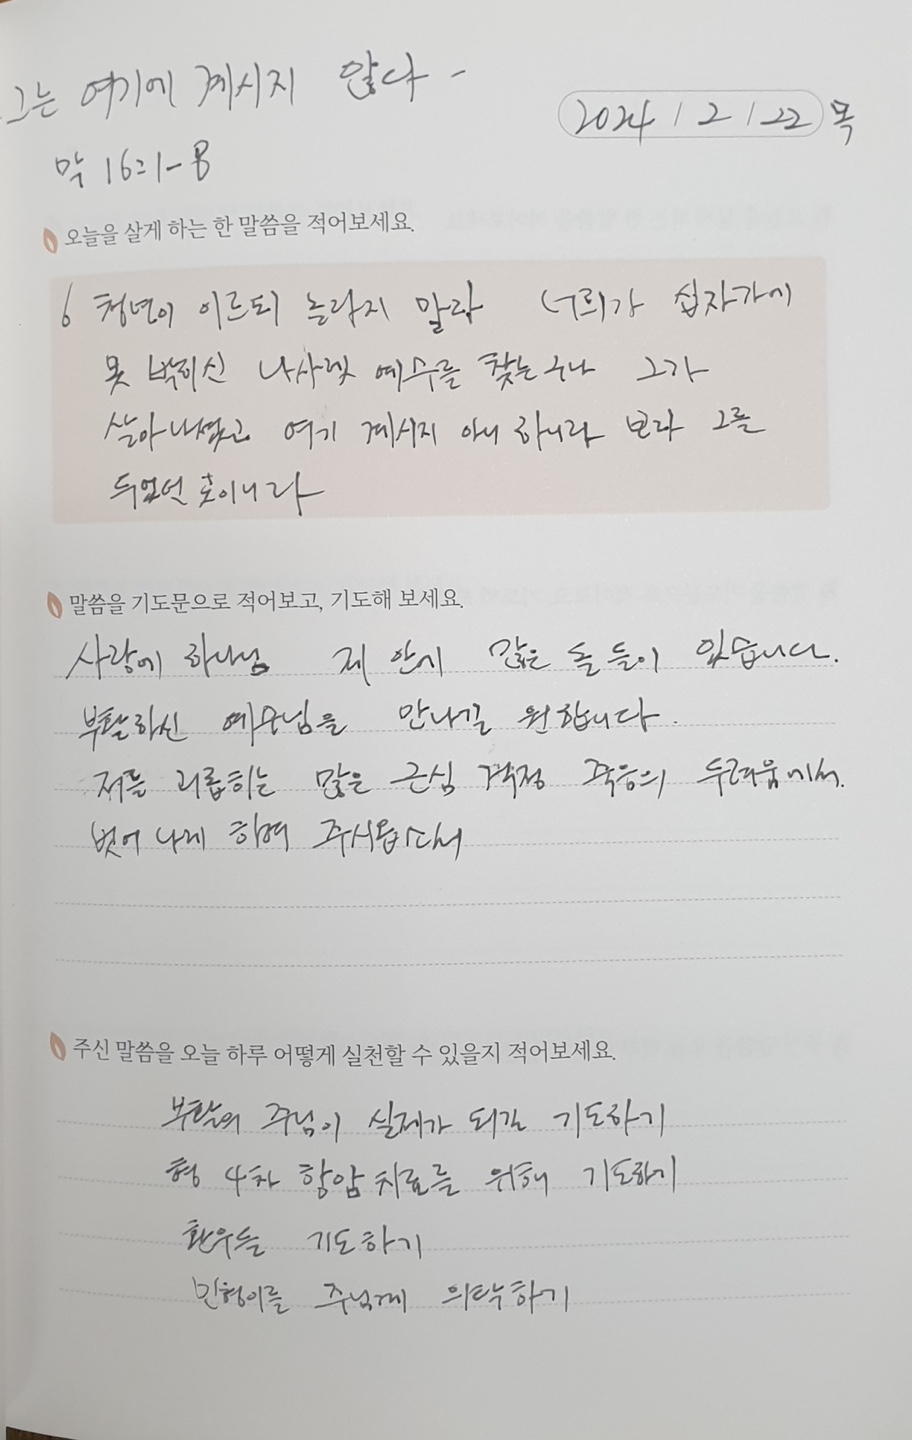 그는 여기에 계시지 않다 -
2024 / 2 / 22 목
막 16:1-8
오늘을 살게 하는 한 말씀을 적어보세요.
6 청년이 이르되 놀라지 말라 너희가 십자가에
못 박히신 나사렛 예수를 찾는구나 그가
살아나셨고 여기 계시지 아니 하니라 보라 그를
두었던 곳이니라
말씀을 기도문으로 적어보고, 기도해 보세요.
사랑에 하나님 제 안에 많은 돌들이 있습니다.
부활하신 예수님을 만나길 원합니다.
저를 괴롭히는 많은 근심 걱정 죽음의 두려움에서.
벗어나게 하여 주시옵소서
주신 말씀을 오늘 하루 어떻게 실천할 수 있을지 적어보세요.
부활의 주님이 실제가 되길 기도하기
형 4차 항암치료를 위해 기도하기
환우들 기도하기
민형이를 주님께 의탁하기